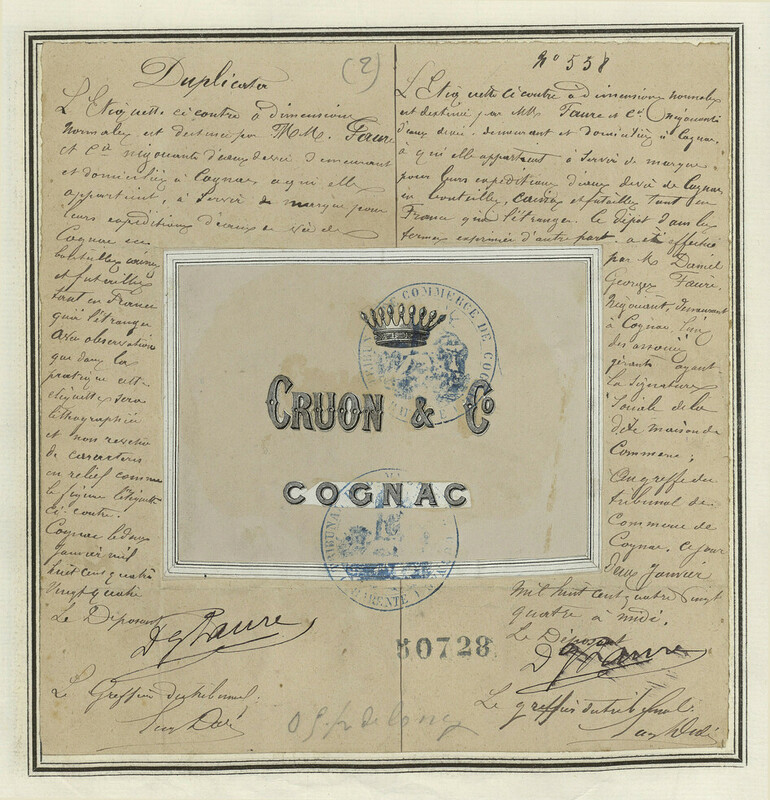 Duplicata
(2)
L'Etiquette ci contre à dimensions
normales est destinée par MM. Faure
et Cie négociants d'eaux de vie demeurant
et domiciliés à Cognac, à qui elle
appartient, à servir de marque pour
leurs expéditions d'eaux de vie de
Cognac en
bouteilles caisses
et futailles
tant en France
qu'à l'étranger
avec observation
que dans la
pratique cette
étiquette sera
lithographiée
et non revêtue
de caractères
en relief comme
le figure l'étiquette
ci-contre.
Cognac le deux
Janvier mil
huit cent quatre
vingt quatre
Le Déposant
D G Faure
Le Greffier du tribunal
No 538
L'Etiquette ci contre à dimensions normales
est destinée par MM. Faure et Cie négociants
d'eaux de vie, demeurant et domiciliés à Cognac,
à qui elle appartient à servir de marque
pour leurs expéditions d'eaux de vie de Cognac
en bouteilles, caisses et futailles tant en
France qu'à l'étranger. Le dépôt dans les
termes exprimés d'autre part a été effectué
par M. Daniel
Georges Faure,
Négociant, demeurant
à Cognac, l'un
des associés
gérants ayant
la signature
sociale de la
dite maison de
Commerce;
Au greffe du
tribunal de
Commerce de
Cognac, ce jour
deux Janvier
mil huit cent quatre vingt
quatre à midi.
Le Déposant
D G Faure
Le greffier du tribunal
CRUON & Co
COGNAC
TRIBUNAL DE COMMERCE DE COGNAC
CHARENTE
50728